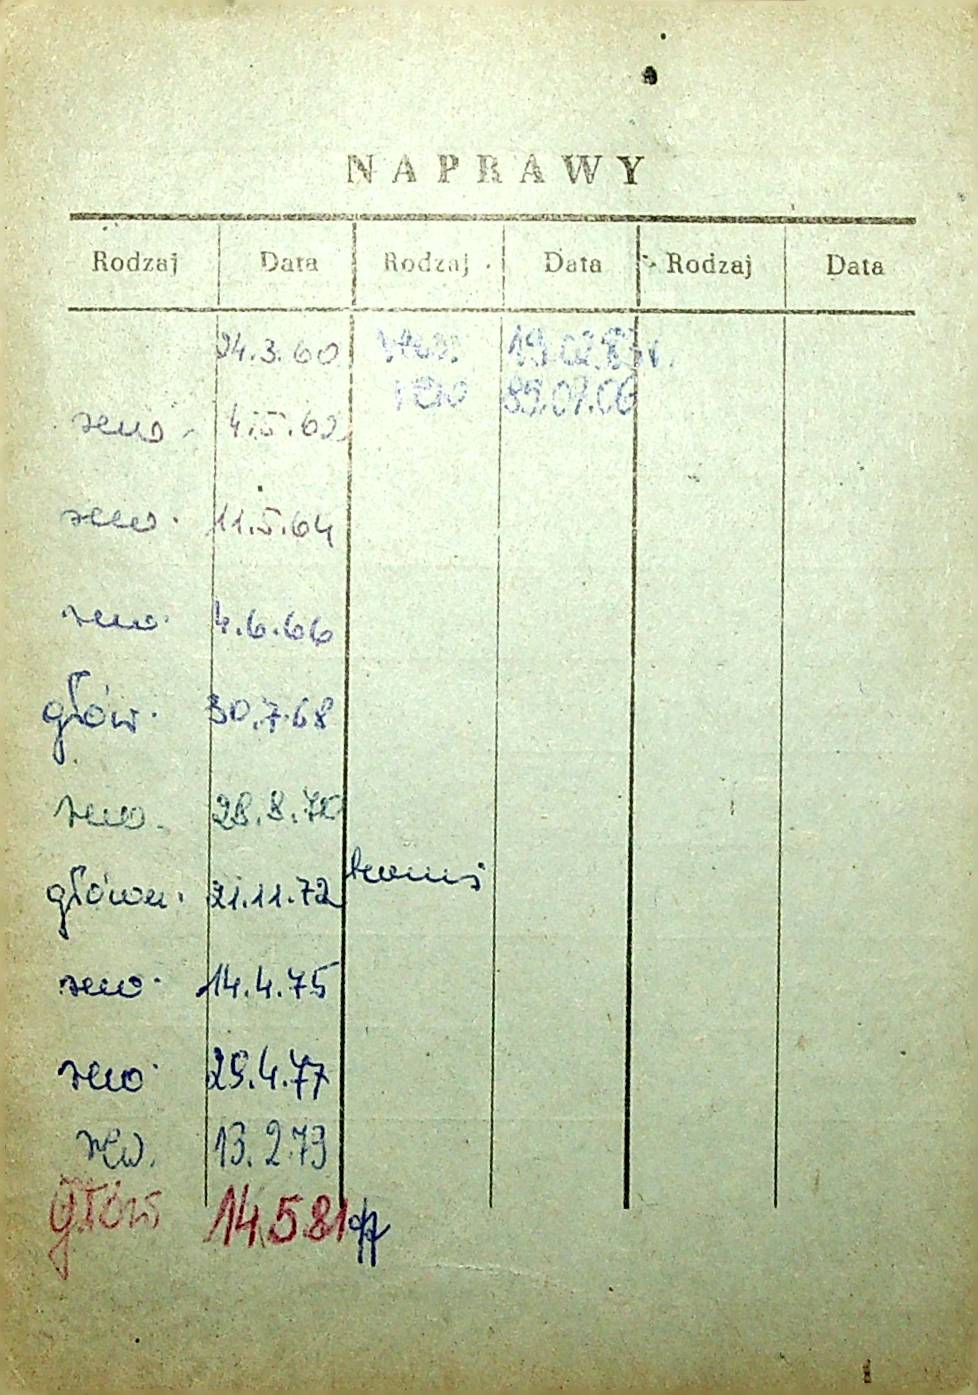 NAPRAWY
Rodzaj Data Rodzaj Data Rodzaj Data
24.3.60 rew. 19.02.83r.
rew 89.07.06
rew. 4.5.62
rew. 11.5.64
rew. 4.6.66
głów. 30.7.68
rew. 28.8.70
główn. 21.11.72
rew. 14.4.75
rew. 29.4.77
rew. 13.2.79
głów 14.5 81